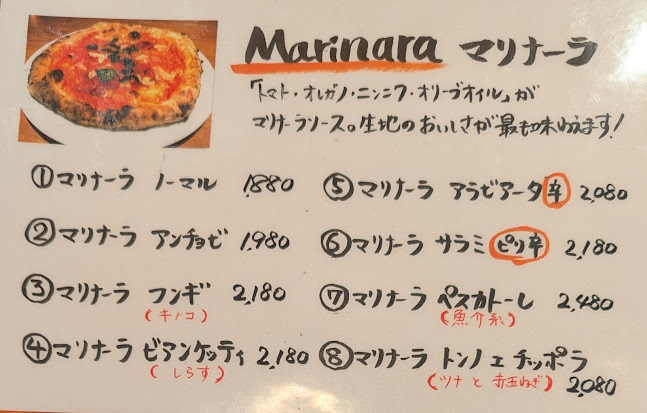 Marinara マリナーラ
「トマト・オレガノ・ニンニク・オリーブオイル」が
マリナーラソース。生地のおいしさが最も味わえます!
① マリナーラ ノーマル 1,880
② マリナーラ アンチョビ 1,980
③ マリナーラ フンギ 2,180
(キノコ)
④ マリナーラ ビアンケッティ 2,180
(しらす)
⑤ マリナーラ アラビアータ 辛 2,080
⑥ マリナーラ サラミ ピリ辛 2,180
⑦ マリナーラ ペスカトーレ 2,480
(魚介系)
⑧ マリナーラ トンノ エ チッポラ
(ツナと赤玉ねぎ) 2,080